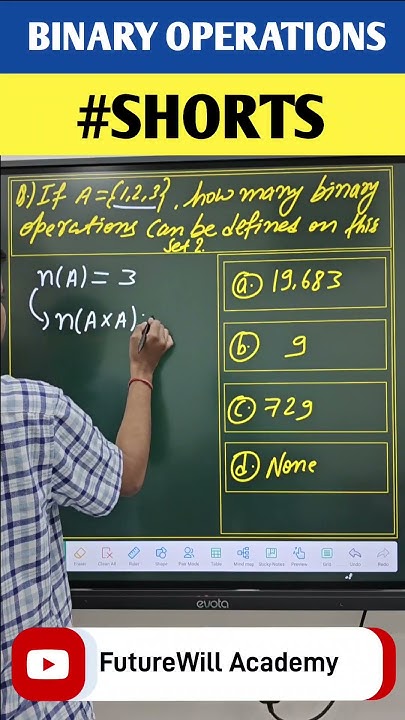 BINARY OPERATIONS
#SHORTS
Q.) If A = {1,2,3}, how many binary
operations can be defined on this
set?
n(A) = 3
n(A×A) =
a. 19,683
b. 9
c. 729
d. None
Eraser Clear All Ruler Shape Pair Mode Table Mind map Sticky Notes Preview Grid Undo Redo
evota
FutureWill Academy